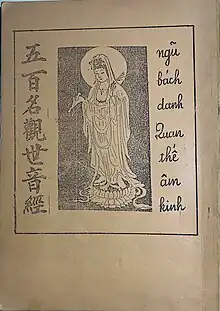 五百名觀世音經
ngũ
bách
danh
Quan
thế
âm
kinh